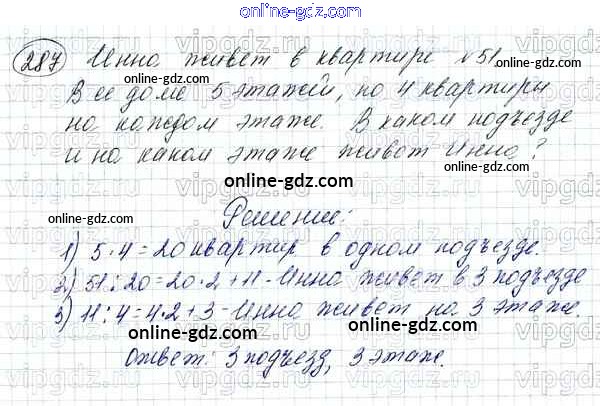 online-gdz.com
287 Инна живет в квартире №51.
В ее доме 5 этажей, по 4 квартиры
на каждом этаже. В каком подъезде
и на каком этаже живет Инна?
online-gdz.com
online-gdz.com
online-gdz.com
online-gdz.com
Решение:
online-gdz.com
online-gdz.com
1) 5·4=20 квартир в одном подъезде.
2) 51:20=20·2+11-Инна живет в 3 подъезде
3) 11:4=4·2+3-Инна живет на 3 этаже.
online-gdz.com
online-gdz.com
Ответ: 3 подъезд, 3 этаж.
online-gdz.com